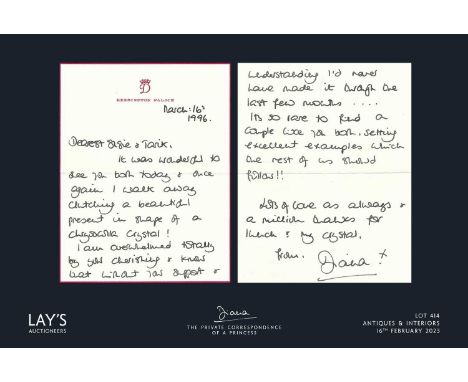 D
KENSINGTON PALACE
March: 16th
1996.
Dearest Susie & Tarik.
It was wonderful to
see you both today & once
again I walk away
clutching a beautiful
present in shape of a
Chrysocolla Crystal!
I am overwhelmed totally
by your cherishing & know
that without your support &
understanding I'd never
have made it through the
last few months ....
Its so rare to find a
couple like you both, setting
excellent examples which
the rest of us should
follow!!
Lots of love as always &
a million thanks for
lunch & my crystal.
from,
Diana x
LAY'S
AUCTIONEERS
Diana
THE PRIVATE CORRESPONDENCE
OF A PRINCESS
LOT 414
ANTIQUES & INTERIORS
16TH FEBRUARY 2023